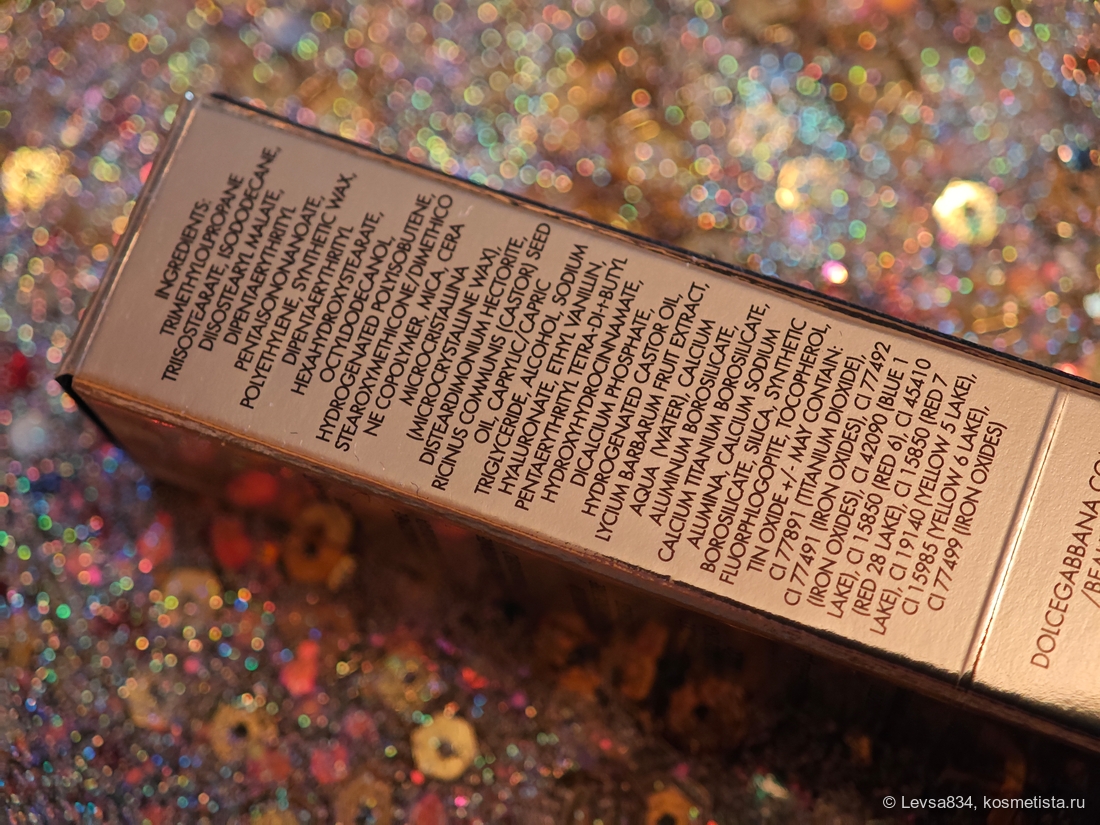 INGREDIENTS:
TRIMETHYLOLPROPANE
TRIISOSTEARATE, ISODODECANE,
DIISOSTEARYL MALATE,
DIPENTAERYTHRITYL
PENTAISONONANOATE,
POLYETHYLENE, SYNTHETIC WAX,
DIPENTAERYTHRITYL
HEXAHYDROXYSTEARATE,
OCTYLDODECANOL,
HYDROGENATED POLYISOBUTENE,
STEAROXYMETHICONE/DIMETHICO
NE COPOLYMER, MICA, CERA
MICROCRISTALLINA
(MICROCRYSTALLINE WAX),
DISTEARDIMONIUM HECTORITE,
RICINUS COMMUNIS (CASTOR) SEED
OIL, CAPRYLIC/CAPRIC
TRIGLYCERIDE, ALCOHOL, SODIUM
HYALURONATE, ETHYL VANILLIN,
PENTAERYTHRITYL TETRA-DI-T-BUTYL
HYDROXYHYDROCINNAMATE,
DICALCIUM PHOSPHATE,
HYDROGENATED CASTOR OIL,
LYCIUM BARBARUM FRUIT EXTRACT,
AQUA (WATER), CALCIUM
ALUMINUM BOROSILICATE,
CALCIUM TITANIUM BOROSILICATE,
ALUMINA, CALCIUM SODIUM
BOROSILICATE, SILICA, SYNTHETIC
FLUORPHLOGOPITE, TOCOPHEROL,
TIN OXIDE +/- MAY CONTAIN:
CI 77891 (TITANIUM DIOXIDE),
CI 77491 (IRON OXIDES), CI 77492
(IRON OXIDES), CI 42090 (BLUE 1
LAKE), CI 15850 (RED 6), CI 45410
(RED 28 LAKE), CI 15850 (RED 7
LAKE), CI 19140 (YELLOW 5 LAKE),
CI 15985 (YELLOW 6 LAKE),
CI 77499 (IRON OXIDES)
DOLCEGABBANA
© Levsa834, kosmetista.ru